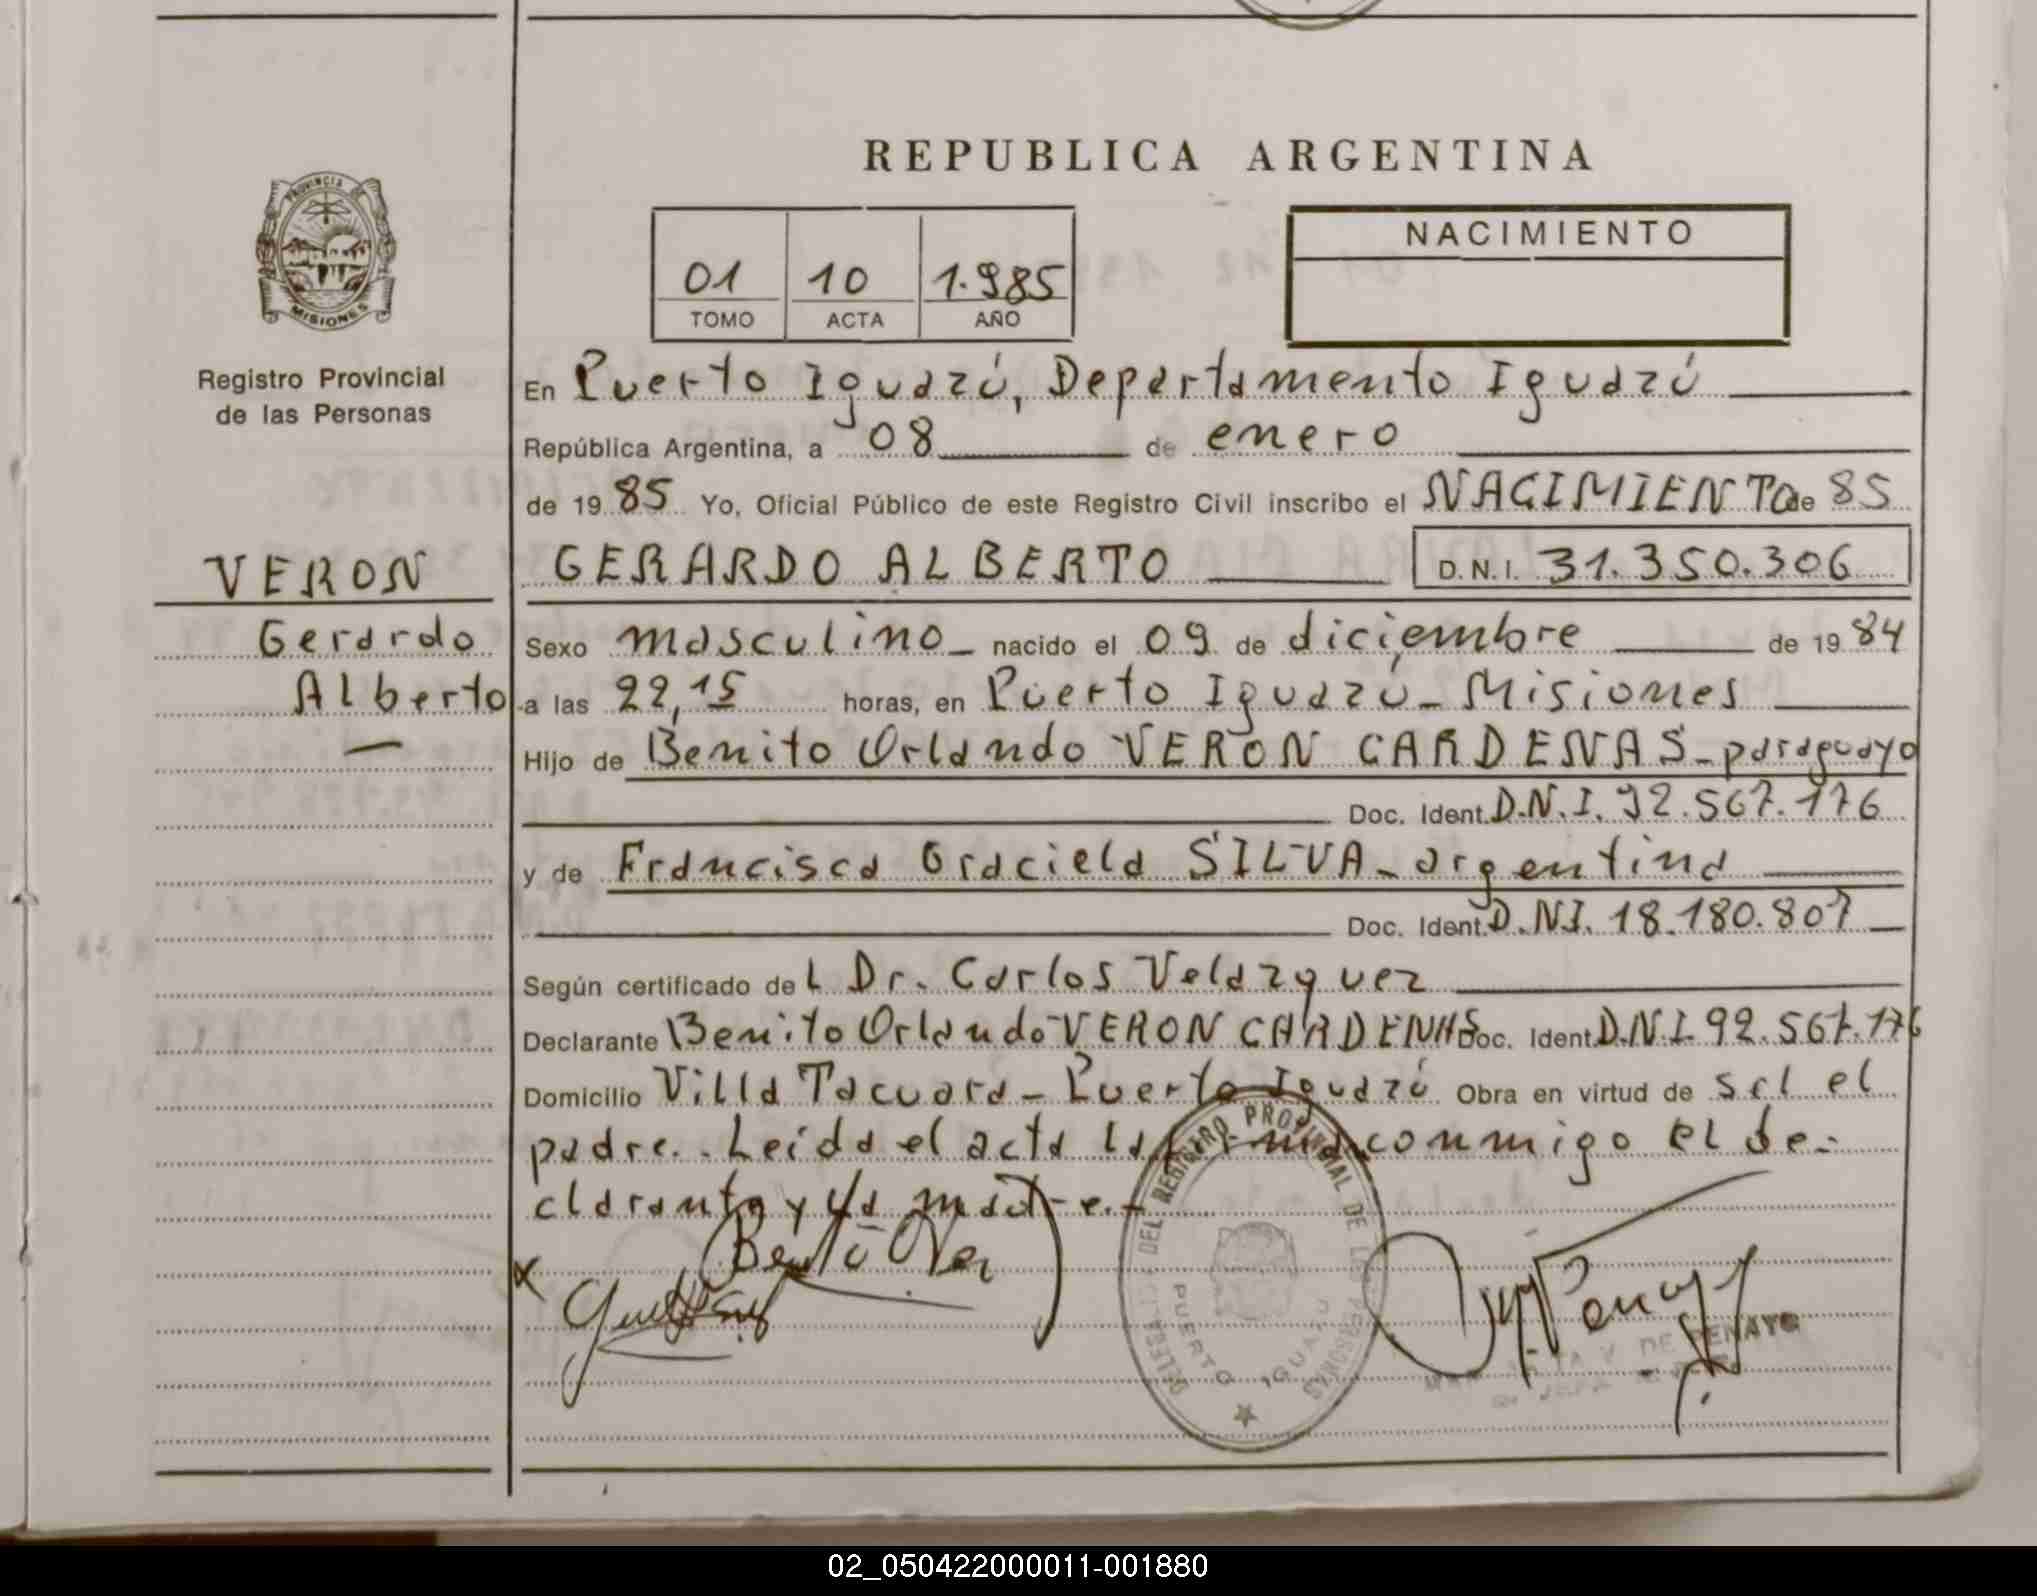 REPUBLICA ARGENTINA
PROVINCIA DE
MISIONES
Registro Provincial
de las Personas
01 10 1.985
TOMO ACTA AÑO
NACIMIENTO
En Puerto Iguazú, Departamento Iguazú
República Argentina, a 08 de enero
de 19 85 Yo, Oficial Público de este Registro Civil inscribo el NACIMIENTO de 85
VERON
GERARDO ALBERTO D.N.I. 31.350.306
Gerardo
Sexo masculino nacido el 09 de diciembre de 19 84
Alberto
a las 22,15 horas, en Puerto Iguazú - Misiones
Hijo de Benito Orlando VERON CARDENAS - paraguayo
Doc. Ident. D.N.I. 92.567.176
y de Francisca Graciela SILVA - argentina
Doc. Ident. D.N.I. 18.180.807
Según certificado de L Dr. Carlos Velazquez
Declarante Benito Orlando VERON CARDENAS Doc. Ident. D.N.I. 92.567.176
Domicilio Villa Tacuara - Puerto Iguazú Obra en virtud de ser el
padre.- Leida el acta la firma conmigo el de-
clarante y la madre.-
Benito Ver
DELEGACION DEL REGISTRO PROVINCIAL DE LAS PERSONAS
PUERTO IGUAZU
DE PENAYO
02_050422000011-001880